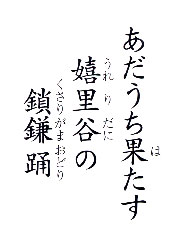 あだうち果たす
嬉里谷の
鎖鎌踊
は
うれりだに
くさりがまおどり